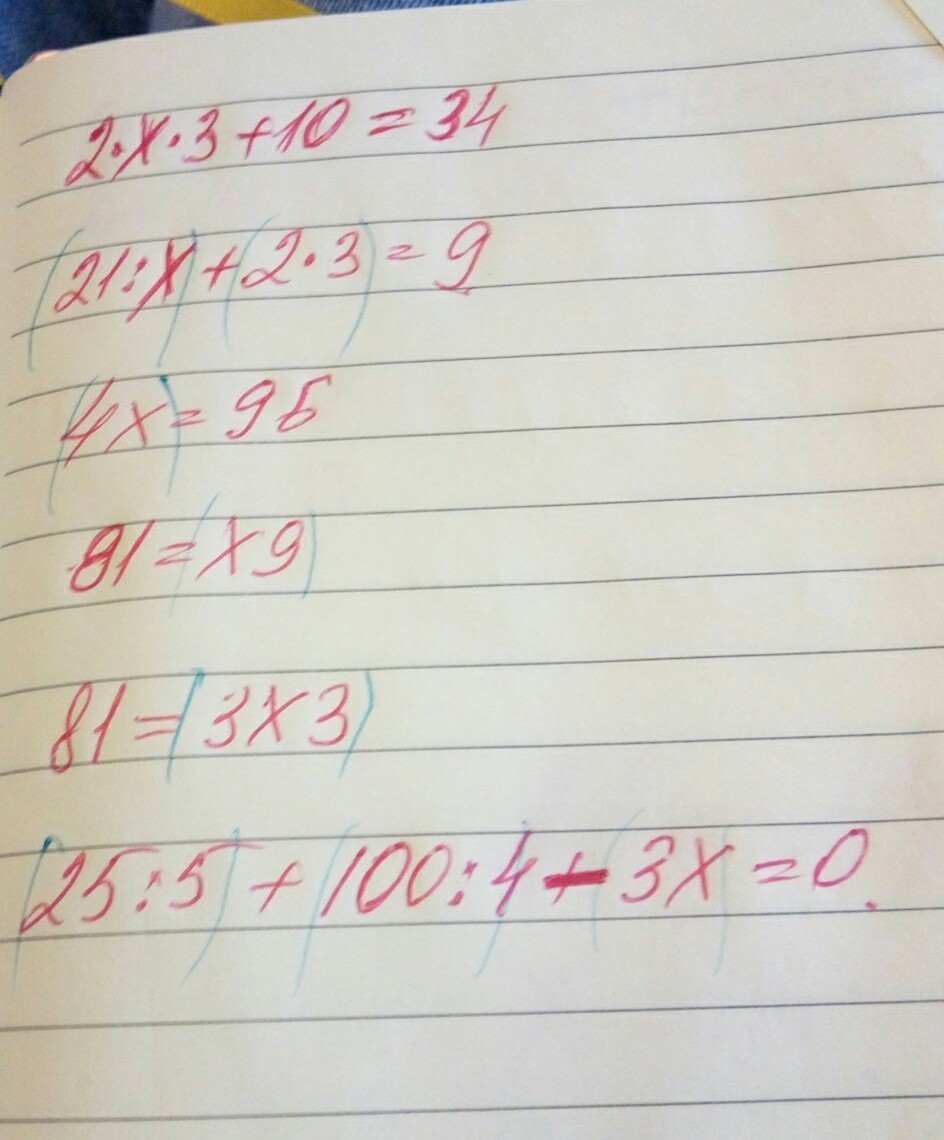 2·x·3+10=34
(21:x)+(2·3)=9
(4x)=96
81=(x9)
81=(3x3)
(25:5)+(100:4)-(3x)=0.